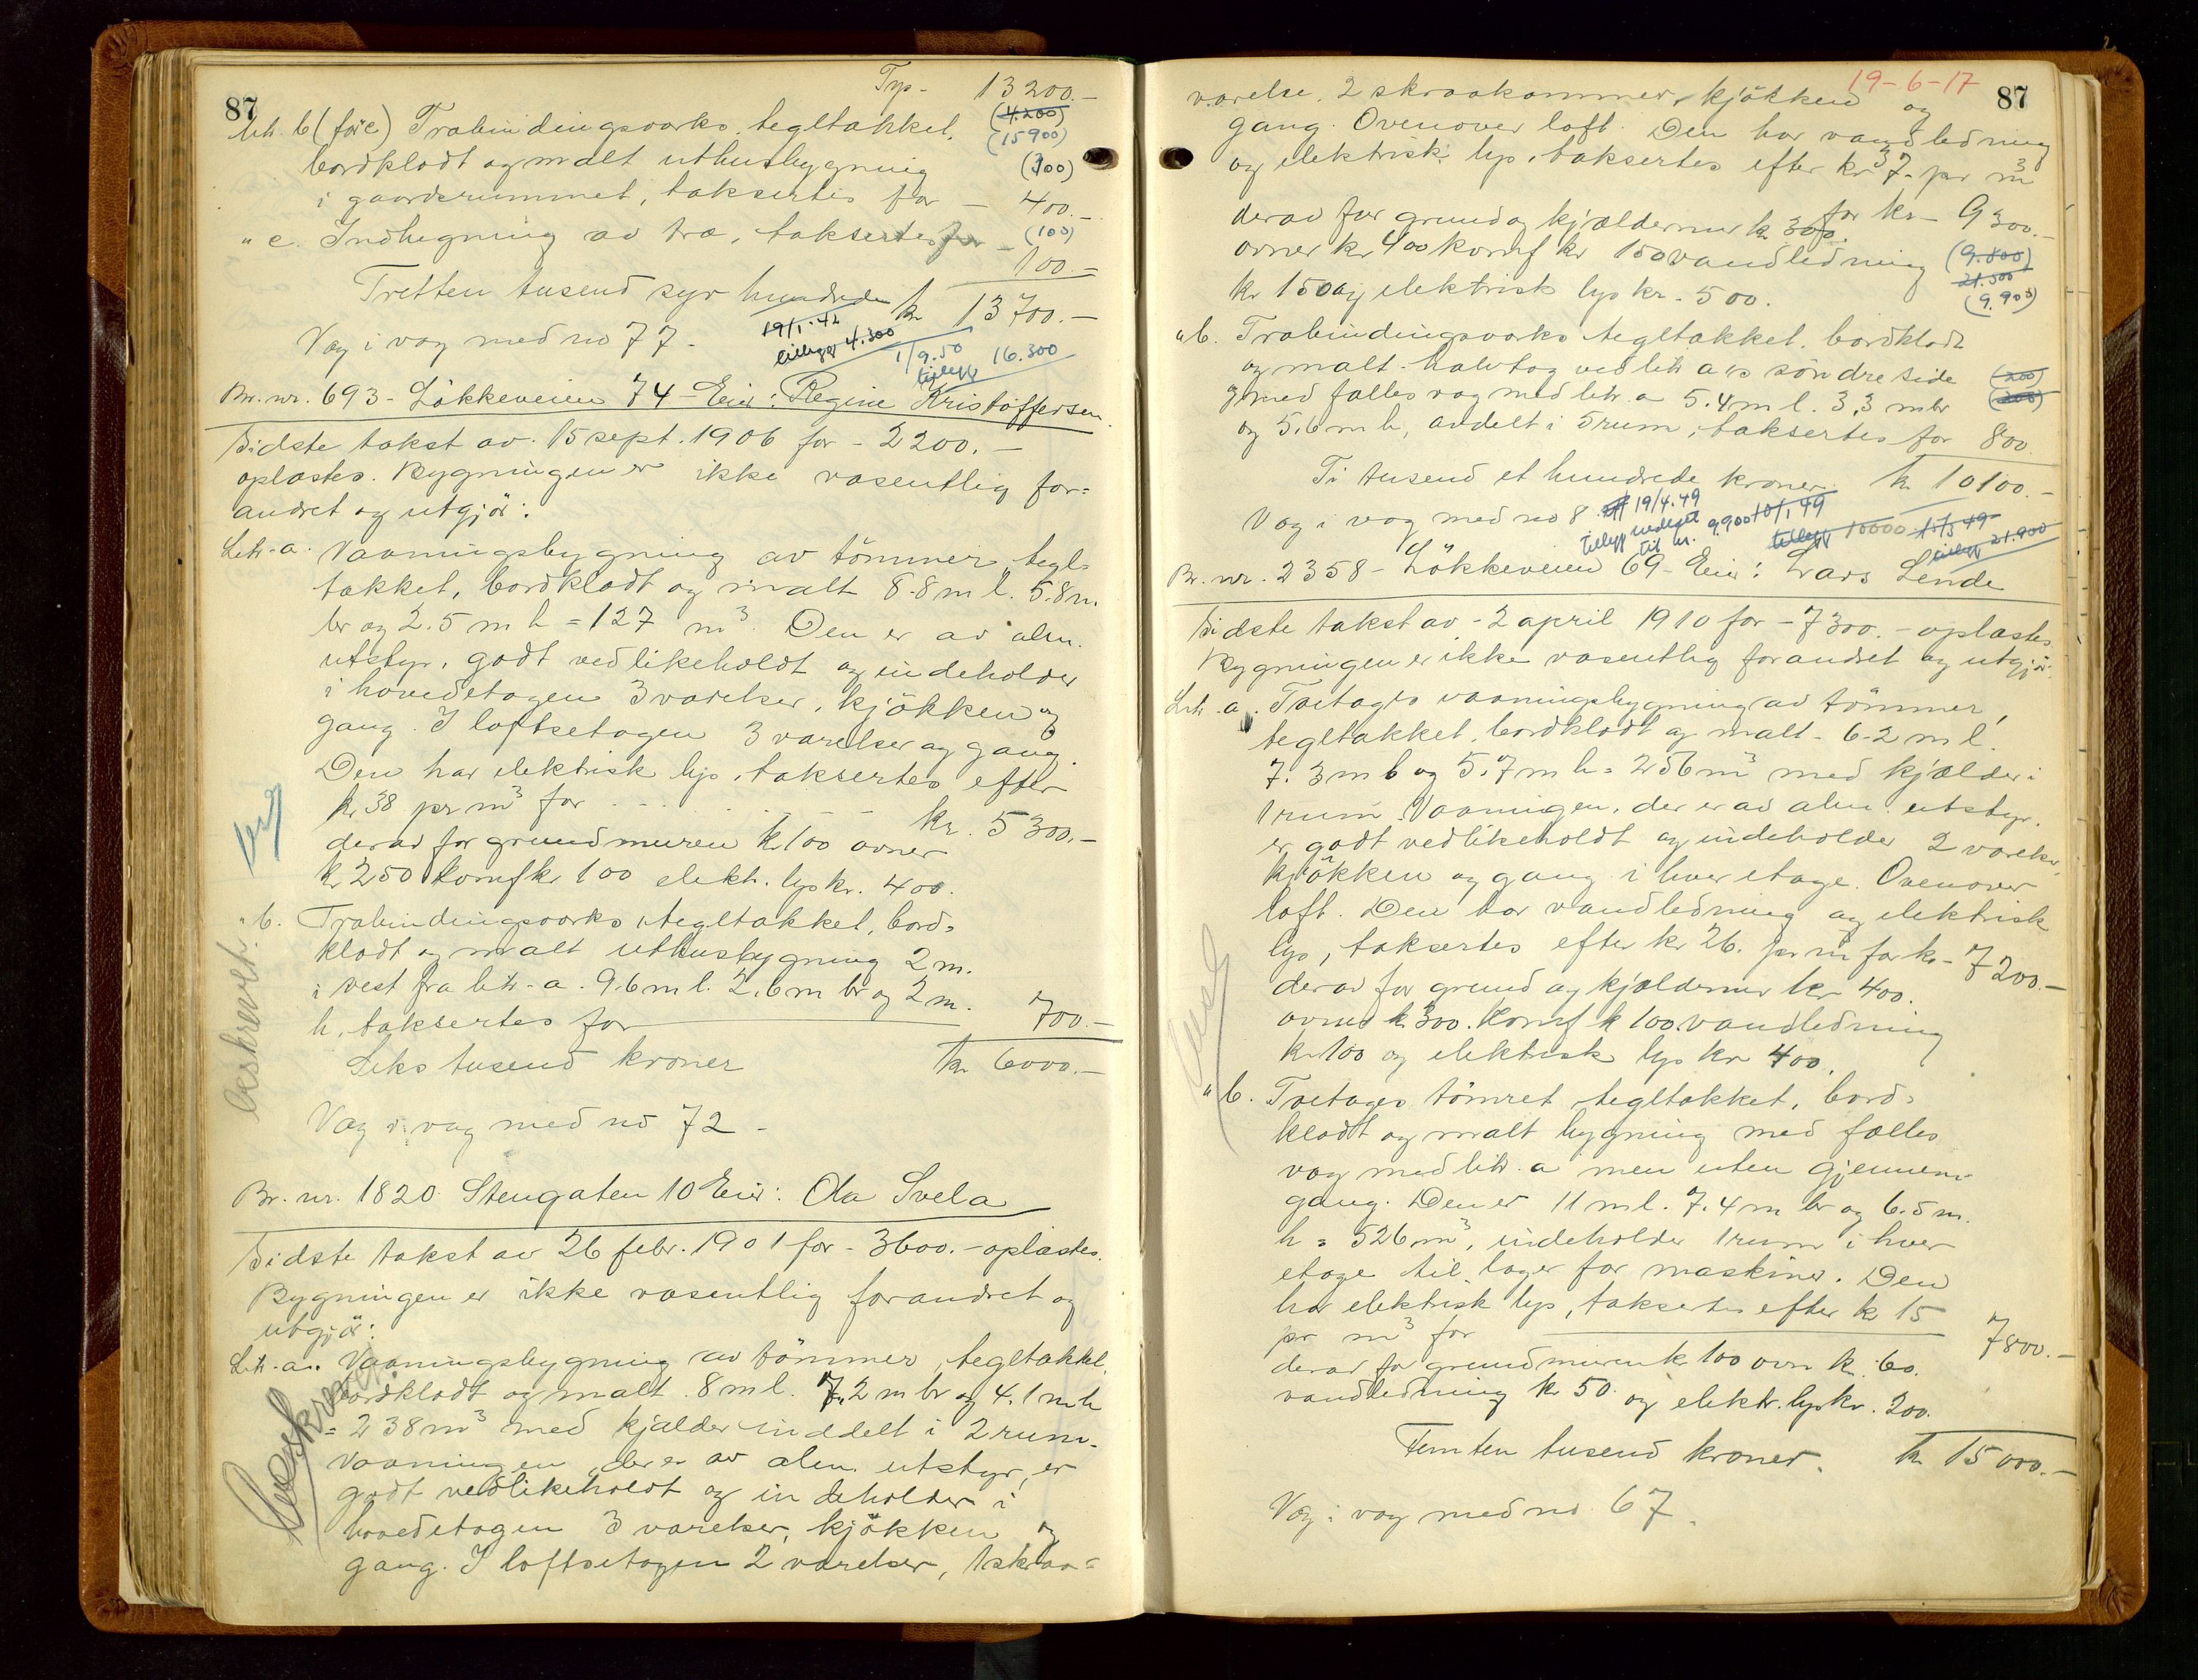 87
Trp. 13200.-
(4.200)
(15900)
Litr. b (før c) Træbindingsværks, tegltækket,
bordklædt og malt uthusbygning (300)
i gaardsrummet, taksertes for - 400.-
" c. Indhegning av træ, taksertes for - (100)
100.-
Tretten tusend syv hundrede kr. 13700.-
Væg i væg med no 77.
19/1-42
tillegg 4.300
1/9.50
tillegg 16.300
Br. nr. 693 - Lökkeveien 74 - Eier: Regine Kristoffersen.
Sidste takst av 15 sept. 1906 for - 2200.-
oplæstes. Bygningen er ikke væsentlig for=
andret og utgjör:
Litr. a. Vaaningsbygning av tömmer, tegl=
tækket, bordklædt og malt 8.8 m l. 5.8 m.
br og 2.5 m h = 127 m³. Den er av alm.
utstyr, godt vedlikeholdt og indeholder
i hovedetagen 3 værelser, kjökken og
gang. I loftsetagen 3 værelser og gang.
Den har elektrisk lys, taksertes efter
kr 38 pr m³ for - - - - - kr. 5300.-
derav for grundmuren kr 100 ovner
kr 250 komf kr 100 elektr. lys kr. 400.
" b. Træbindingsværks, tegltækket, bord=
klædt og malt uthusbygning 2 m.
i vest fra litr. a. 9.6 m l. 2.6 m br og 2 m.
h, taksertes for 700.-
Seks tusend kroner kr 6000.-
Væg i væg med no 72.
beskrevet.
Br. nr. 1820 Stengaten 10 Eier: Ola Svela
Sidste takst av 26 febr. 1901 for - 3600.- oplæstes.
Bygningen er ikke væsentlig forandret og
utgjör:
Litr. a. Vaaningsbygning av tömmer, tegltækket,
bordklædt og malt. 8 m l. 7.2 m br og 4.1 m h
= 238 m³ med kjælder inddelt i 2 rum.
Vaaningen, der er av alm. utstyr, er
godt vedlikeholdt og indeholder i
hovedetagen 3 værelser, kjökken og
gang. I loftsetagen 2 værelser, 1 skraa=
19-6-17
87
værelse, 2 skraakammer, kjökken og
gang. Ovenover loft. Den har vandledning
og elektrisk lys, taksertes efter kr 37.- pr m³
for kr - 9300.-
derav for grund og kjældermur kr 300.
ovner kr 400 komf kr 150 vandledning (9.800)
kr 150 og elektrisk lys kr. 500. 21.500
(9.900)
" b. Træbindingsværks tegltækket, bordklædt
og malt halvtag ved litr a's söndre side (200)
og med fælles væg med litr. a 5.4 m l. 3.3 m br (200)
og 5.6 m h, avdelt i 5 rum, taksertes for 800
Ti tusend et hundrede kroner. kr 10100.-
Væg i væg med no 8
19/4.49
tillegg nedlagt
til kr. 9.900
10/1 49
tillegg 10000
tillegg 21.900
Br. nr. 2358 - Lökkeveien 69 - Eier: Lars Lende
Sidste takst av - 2 april 1910 for - 7300.- oplæstes
Bygningen er ikke væsentlig forandret og utgjör:
Litr. a. Toetages vaaningsbygning av tömmer,
tegltækket, bordklædt og malt - 6.2 m l.
7.3 m b og 5.7 m h = 256 m³ med kjælder i
1 rum. Vaaningen, der er av alm. utstyr,
er godt vedlikeholdt og indeholder 2 værelser,
kjökken og gang i hver etage. Ovenover
loft. Den har vandledning og elektrisk
lys, taksertes efter kr 26. pr m³ for kr - 7200.-
derav for grund og kjældermur kr 400.
ovner kr 300. komf kr 100 vandledning
kr 100 og elektrisk lys kr 400.
" b. Toetages tömret, tegltækket, bord=
klædt og malt bygning med fælles
væg med litr. a men uten gjennem-
gang. Den er 11 m l. 7.4 m br og 6.5 m.
h = 526 m³, indeholder 1 rum i hver
etage til lager for maskiner. Den
har elektrisk lys, taksertes efter kr 15
pr m³ for 7800.-
derav for grundmuren kr 100 ovn kr. 60.
vandledning kr 50. og elektr. lys kr. 200.
Femten tusend kroner. kr 15000.-
Væg i væg med no. 67.